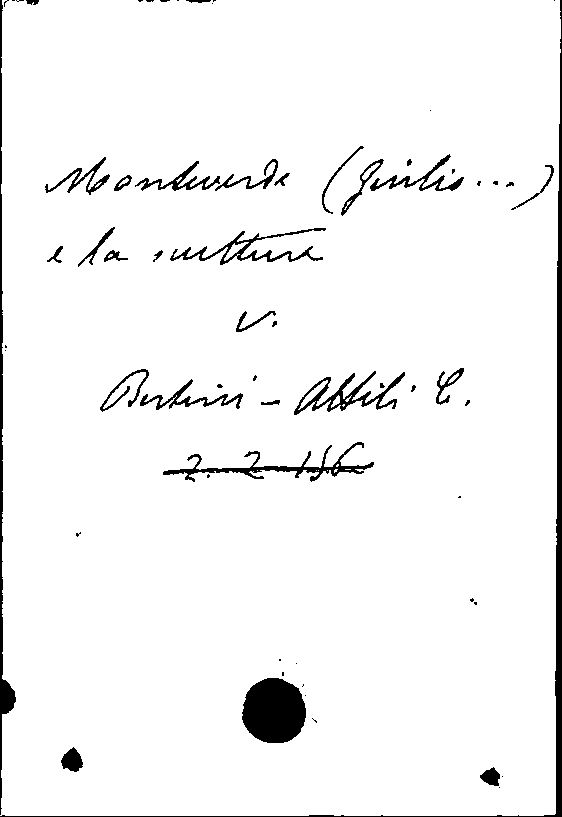 Monteverde (Giulio...)
e la scultura
v.
Bertini - Attili C.
2. 2 156